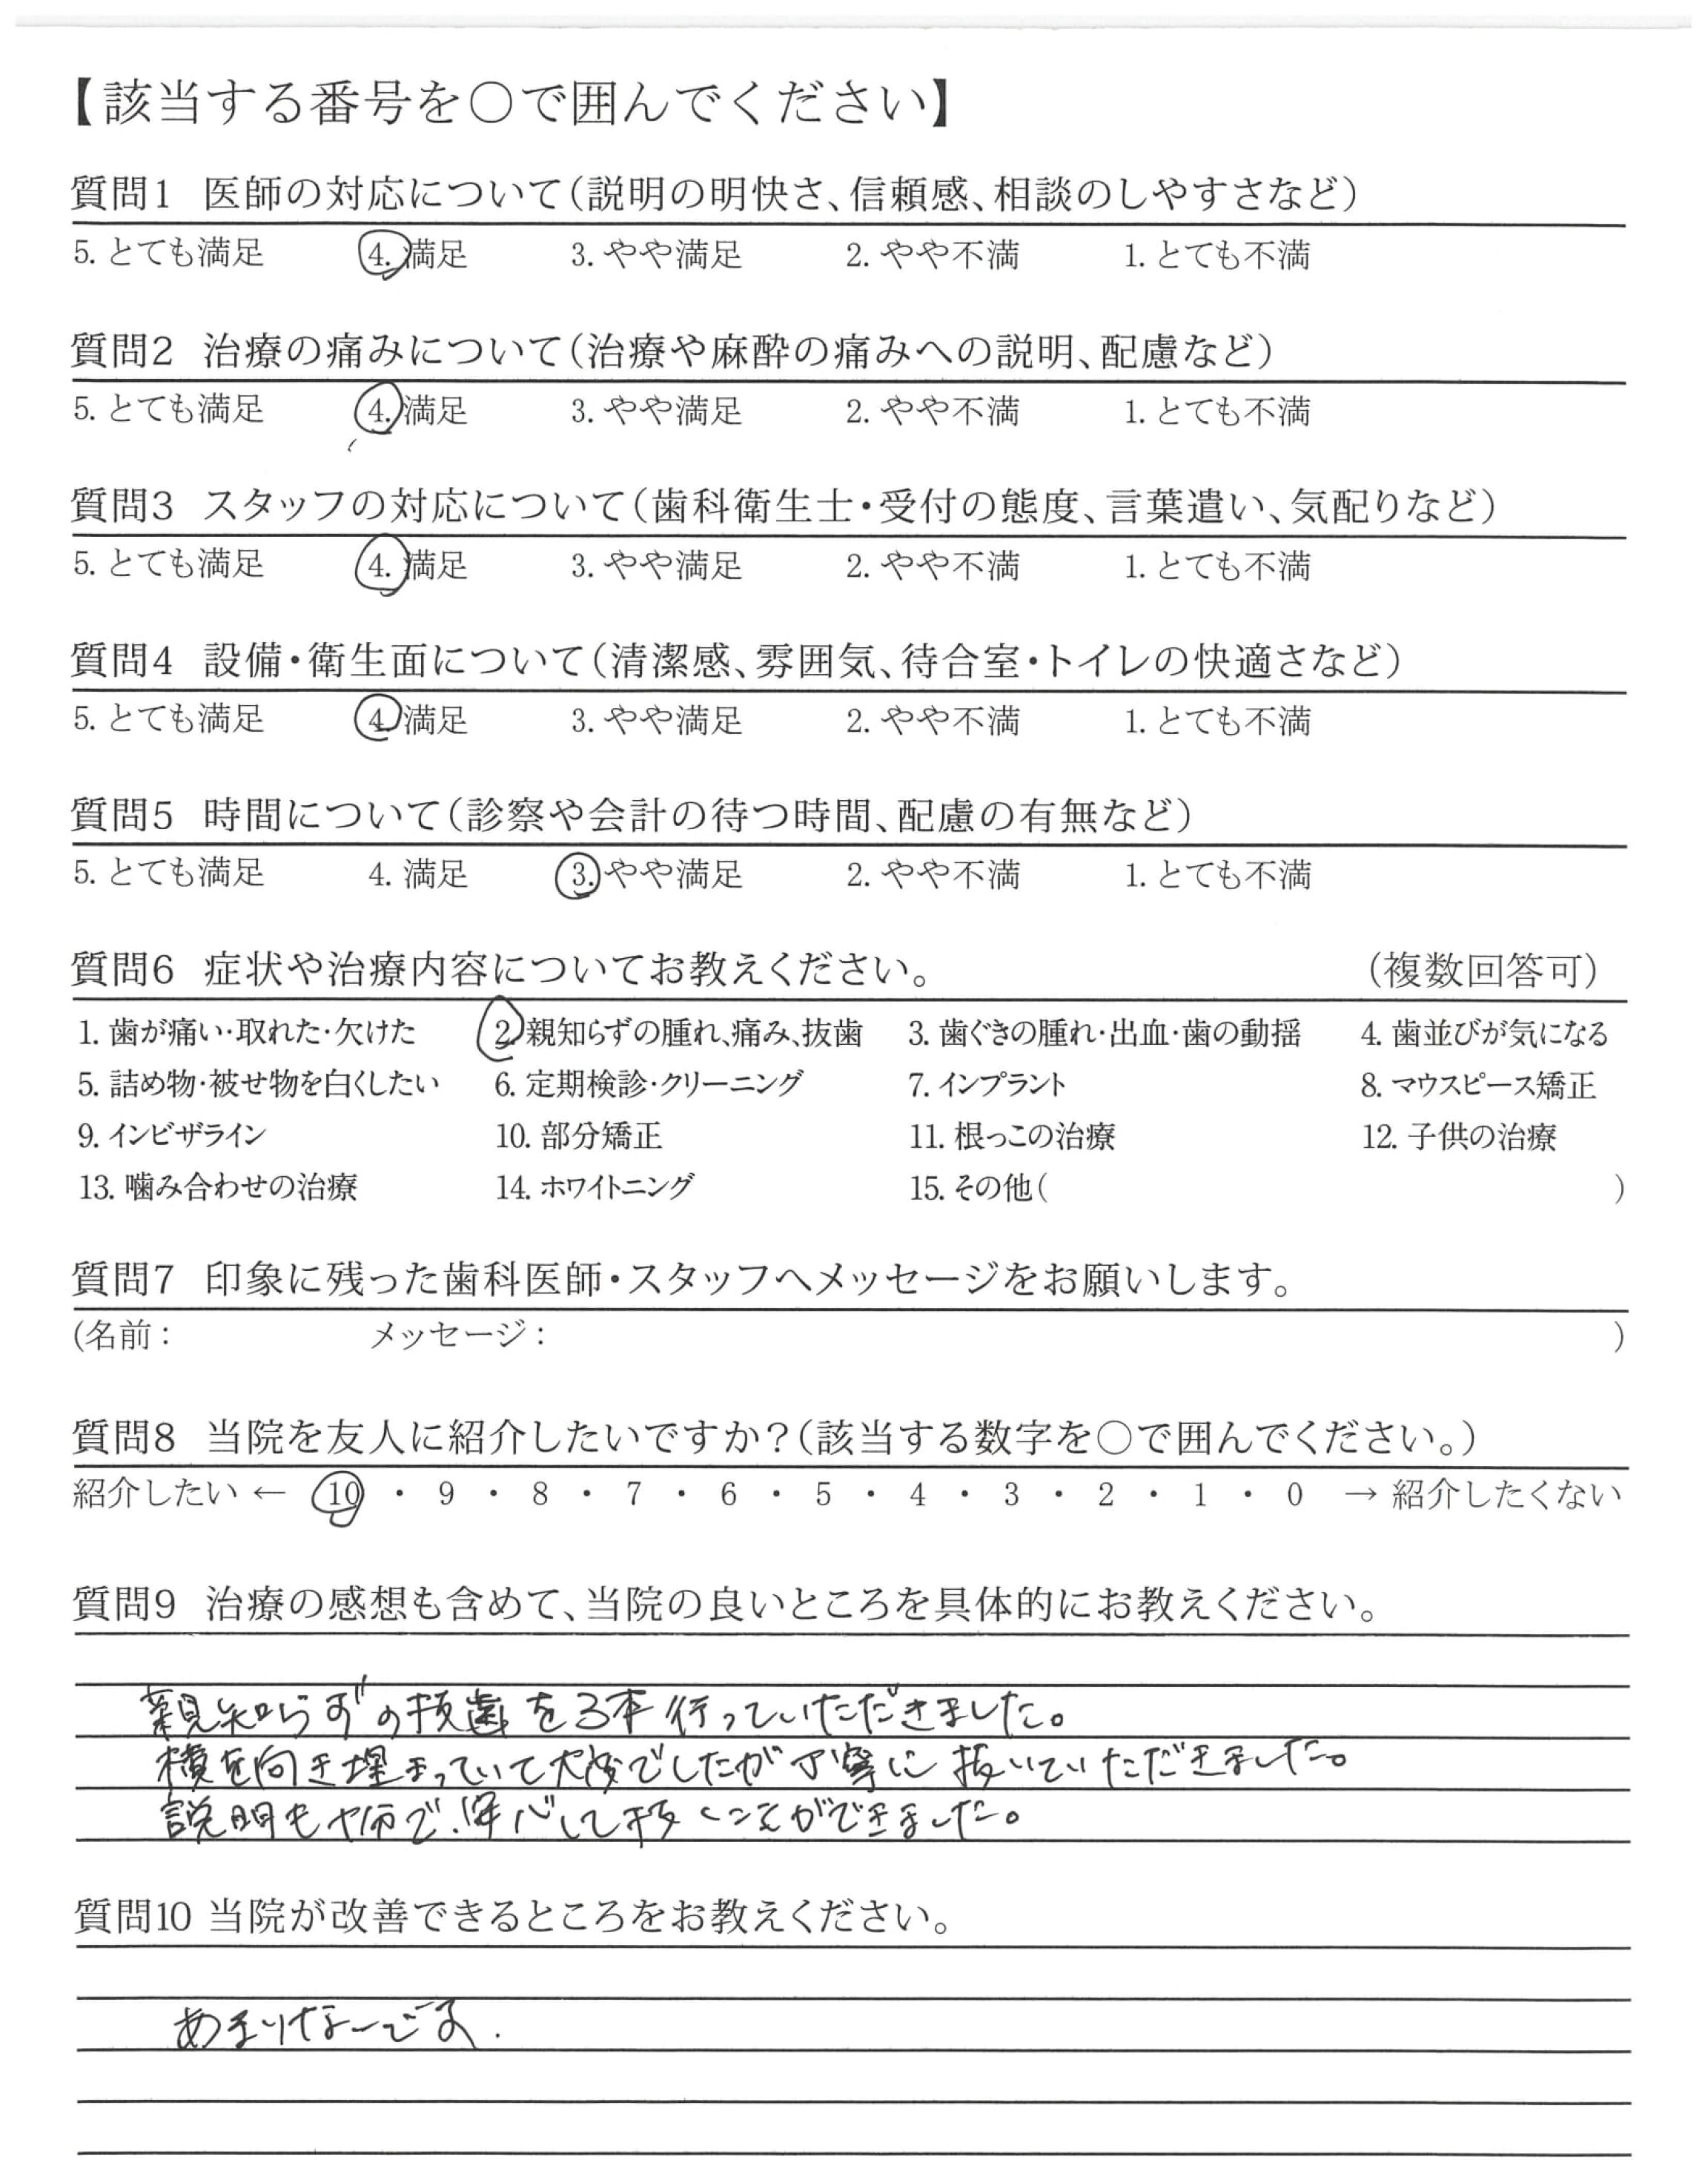 【該当する番号を○で囲んでください】
質問1 医師の対応について(説明の明快さ、信頼感、相談のしやすさなど)
5. とても満足 4. 満足 3. やや満足 2. やや不満 1. とても不満
質問2 治療の痛みについて(治療や麻酔の痛みへの説明、配慮など)
5. とても満足 4. 満足 3. やや満足 2. やや不満 1. とても不満
質問3 スタッフの対応について(歯科衛生士・受付の態度、言葉遣い、気配りなど)
5. とても満足 4. 満足 3. やや満足 2. やや不満 1. とても不満
質問4 設備・衛生面について(清潔感、雰囲気、待合室・トイレの快適さなど)
5. とても満足 4. 満足 3. やや満足 2. やや不満 1. とても不満
質問5 時間について(診察や会計の待つ時間、配慮の有無など)
5. とても満足 4. 満足 3. やや満足 2. やや不満 1. とても不満
質問6 症状や治療内容についてお教えください。 (複数回答可)
1. 歯が痛い・取れた・欠けた 2. 親知らずの腫れ、痛み、抜歯 3. 歯ぐきの腫れ・出血・歯の動揺 4. 歯並びが気になる
5. 詰め物・被せ物を白くしたい 6. 定期検診・クリーニング 7. インプラント 8. マウスピース矯正
9. インビザライン 10. 部分矯正 11. 根っこの治療 12. 子供の治療
13. 噛み合わせの治療 14. ホワイトニング 15. その他( )
質問7 印象に残った歯科医師・スタッフへメッセージをお願いします。
(名前: メッセージ: )
質問8 当院を友人に紹介したいですか?(該当する数字を○で囲んでください。)
紹介したい ← 10 ・ 9 ・ 8 ・ 7 ・ 6 ・ 5 ・ 4 ・ 3 ・ 2 ・ 1 ・ 0 → 紹介したくない
質問9 治療の感想も含めて、当院の良いところを具体的にお教えください。
親知らずの抜歯を3本行っていただきました。
横を向き埋まっていて大変でしたが丁寧に抜いていただきました。
説明も で、安心して抜くことができました。
質問10 当院が改善できるところをお教えください。
あまりないです.